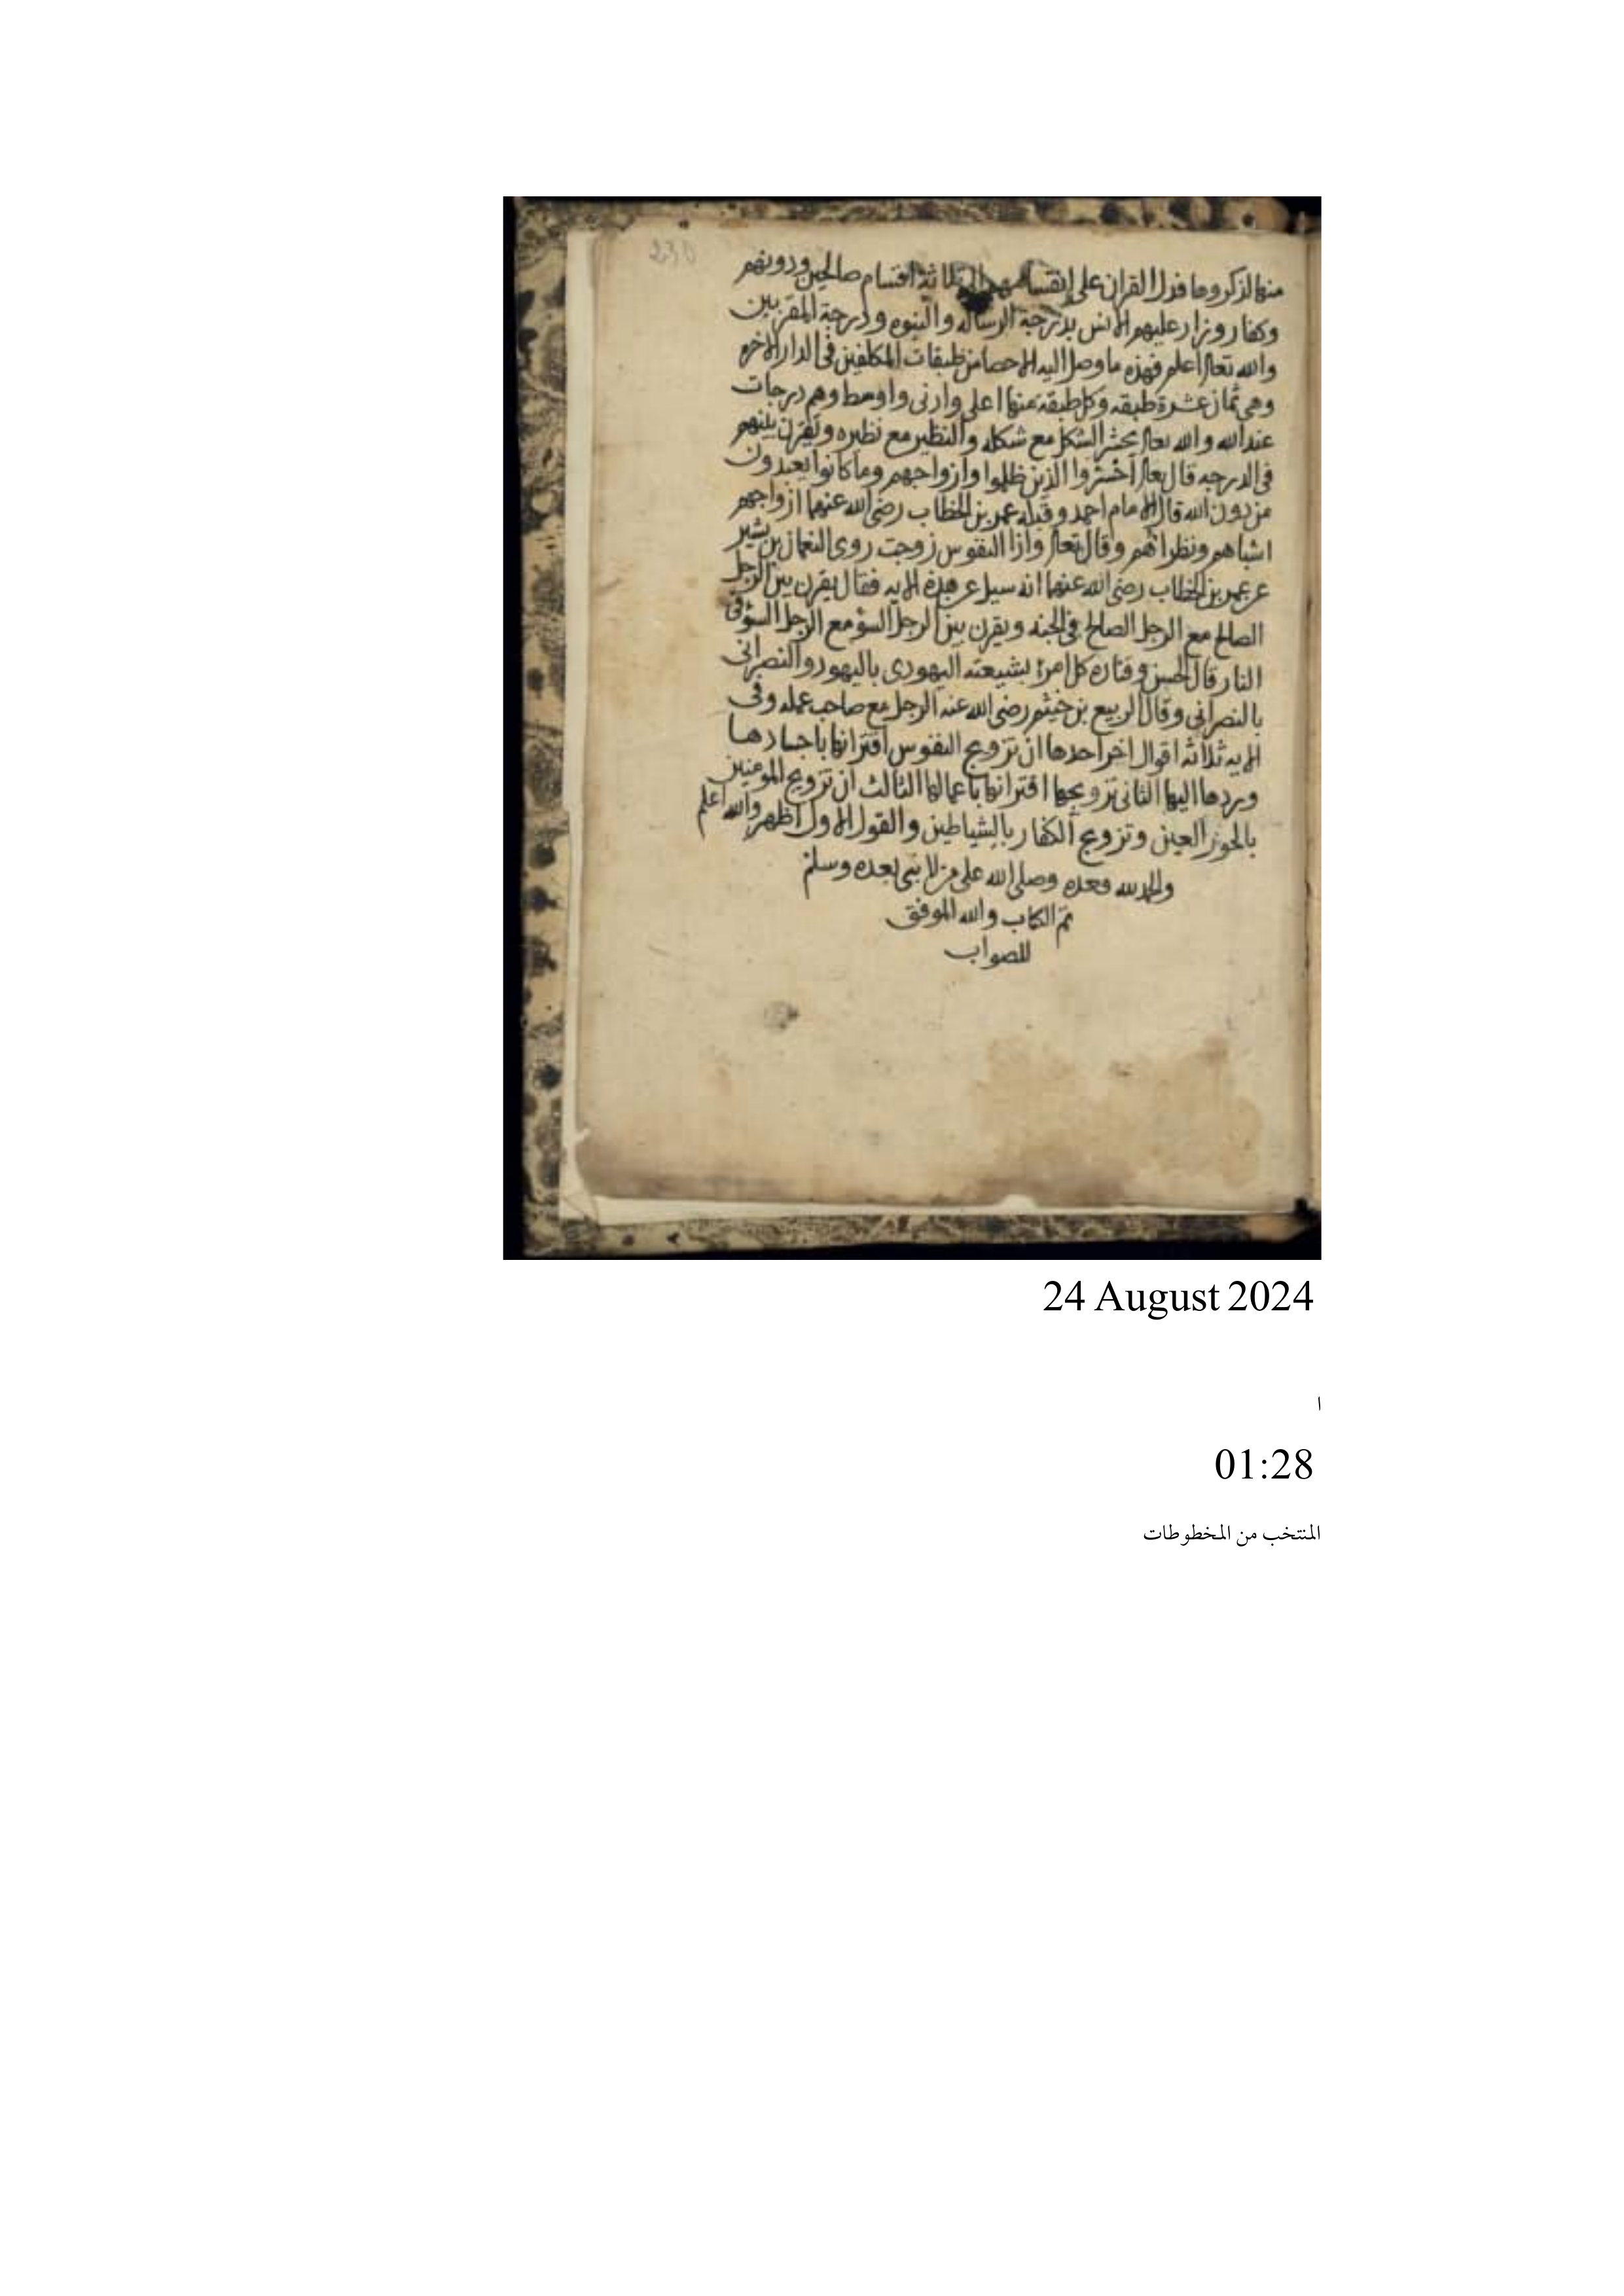 230
منها لذكروها فدل القران على انقسامهم الى ثلاثة اقسام صالحين ودونهم
وكفار وزاد عليهم الانس بدرجة الرساله والنبوه ودرجة المقربين
والله تعالى اعلم فهذه ما وصل اليه الاحصا من طبقات المكلفين فى الدار الاخره
وهى ثمان عشرة طبقه وكل طبقه منها اعلى وادنى واوسط وهم درجات
عند الله والله تعالى يحشر الشكل مع شكله والنظير مع نظيره ويقرن بينهم
فى الدرجه قال تعالى احشروا الذين ظلموا وازواجهم وما كانوا يعبدون
من دون الله قال الامام احمد وقبله عمر بن الخطاب رضى الله عنهما ازواجهم
اشباههم ونظراهم وقال تعالى واذا النفوس زوجت روى النعمان بن بشير
عن عمر بن الخطاب رضى الله عنهما انه سيل عن هذه الايه فقال يقرن بين الرجل
الصالح مع الرجل الصالح فى الجنه ويقرن بين الرجل السؤ مع الرجل السؤ فى
النار قال الحسن وقتاده كل امرئ بشيعته اليهودى باليهود والنصرانى
بالنصرانى وقال الربيع بن خيثم رضى الله عنه الرجل مع صاحب عمله وفى
الايه ثلاثه اقوال اخر احدها ان تزويج النفوس اقترانها باجسادها
وردها اليها الثانى تزويجها اقترانها باعمالها الثالث ان تزويج المومنين
بالحور العين وتزويج الكفار بالشياطين والقول الاول اظهر والله اعلم
والحمد لله وحده وصلى الله على من لا نبى بعده وسلم
تم الكتاب والله الموفق
للصواب
24 August 2024
ا
01:28
المنتخب من المخطوطات